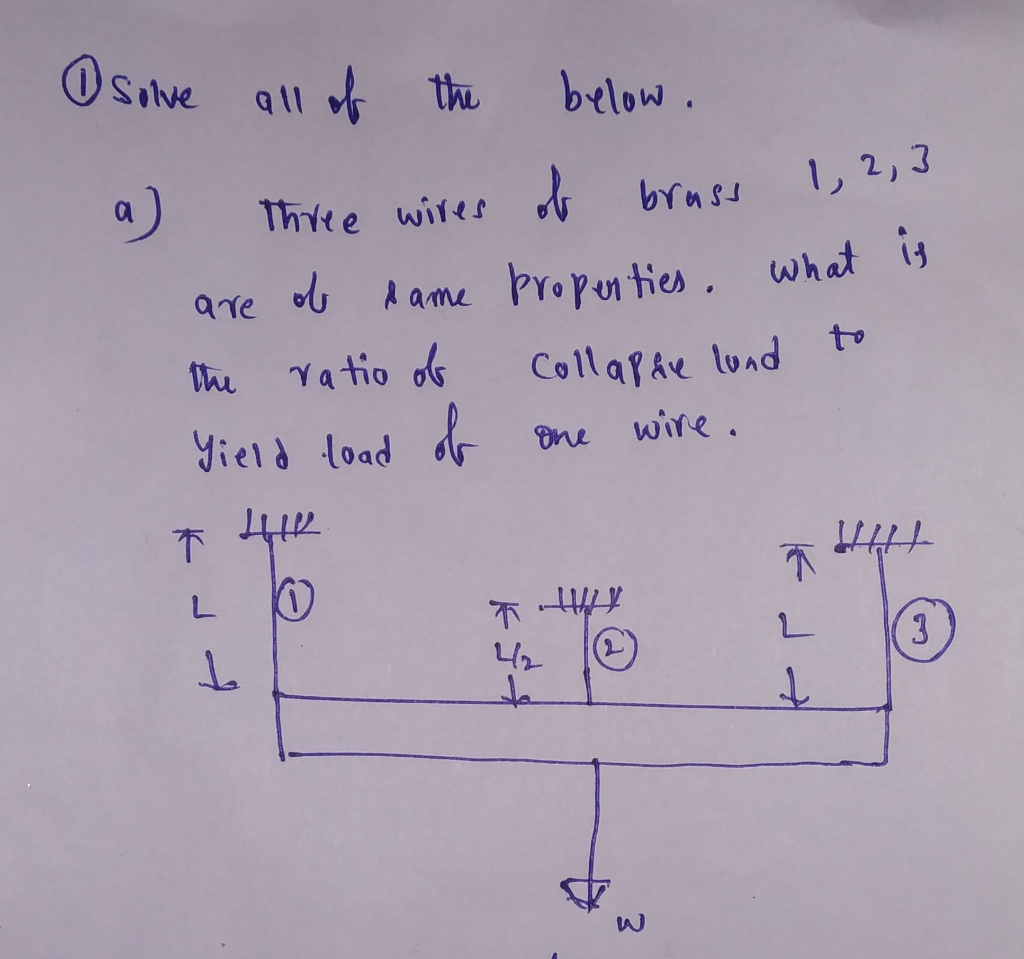 ① Solve all of the below.
a) Three wires of brass 1, 2, 3
are of same properties. What is
the ratio of collapse load to
Yield load of one wire.
L ① L/2 ② L ③
W